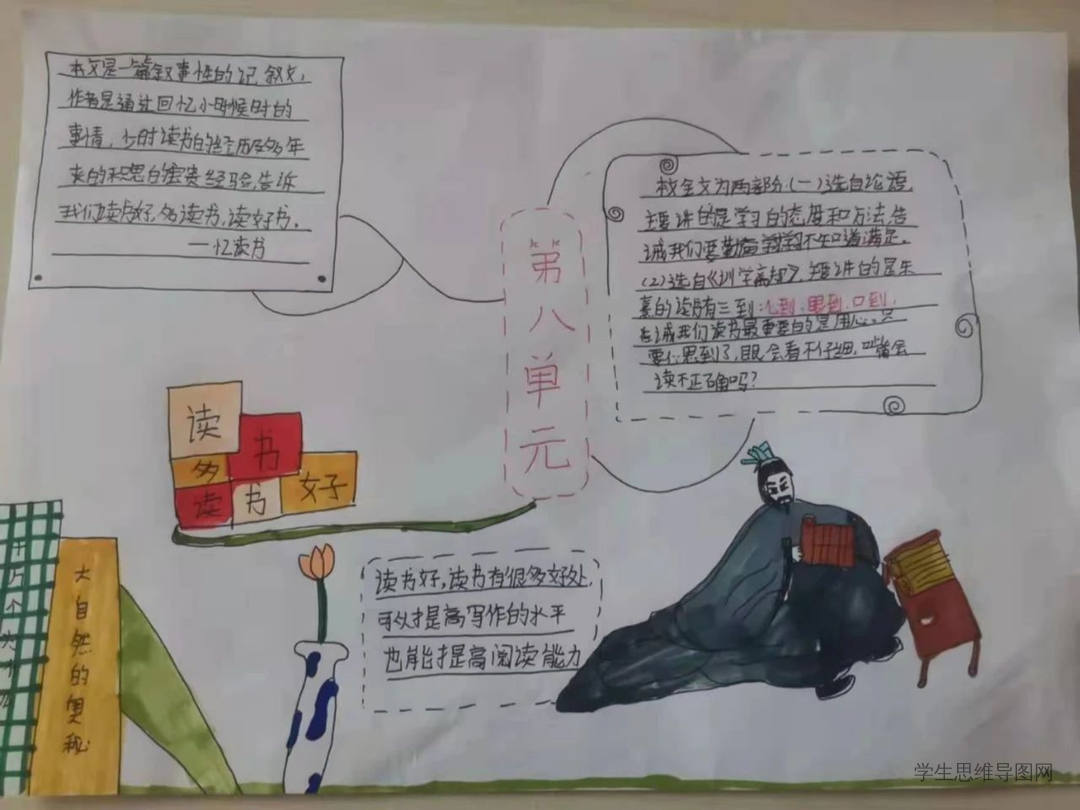 本文是一篇叙事性的记叙文,
作者是通过回忆小时候时的
事情,少时读书的经历及多年
来的积思的宝贵经验,告诉
我们读书好,多读书,读好书。
—忆读书
第八单元
本文全文为两部分(一)选自论语,
主要讲的是学习的态度和方法,告
诫我们要勤奋好学不知道满足。
(2)选自《训学斋规》,主要讲的是朱
熹的读书有三到:心到,眼到,口到,
告诫我们读书最重要的是用心。只
要心累到了,眼会看不仔细,嘴会
读不正确吗?
读书
多
读书好
读书好,读书有很多好处,
可以提高写作的水平
也能提高阅读能力
大自然的奥秘
学生思维导图网